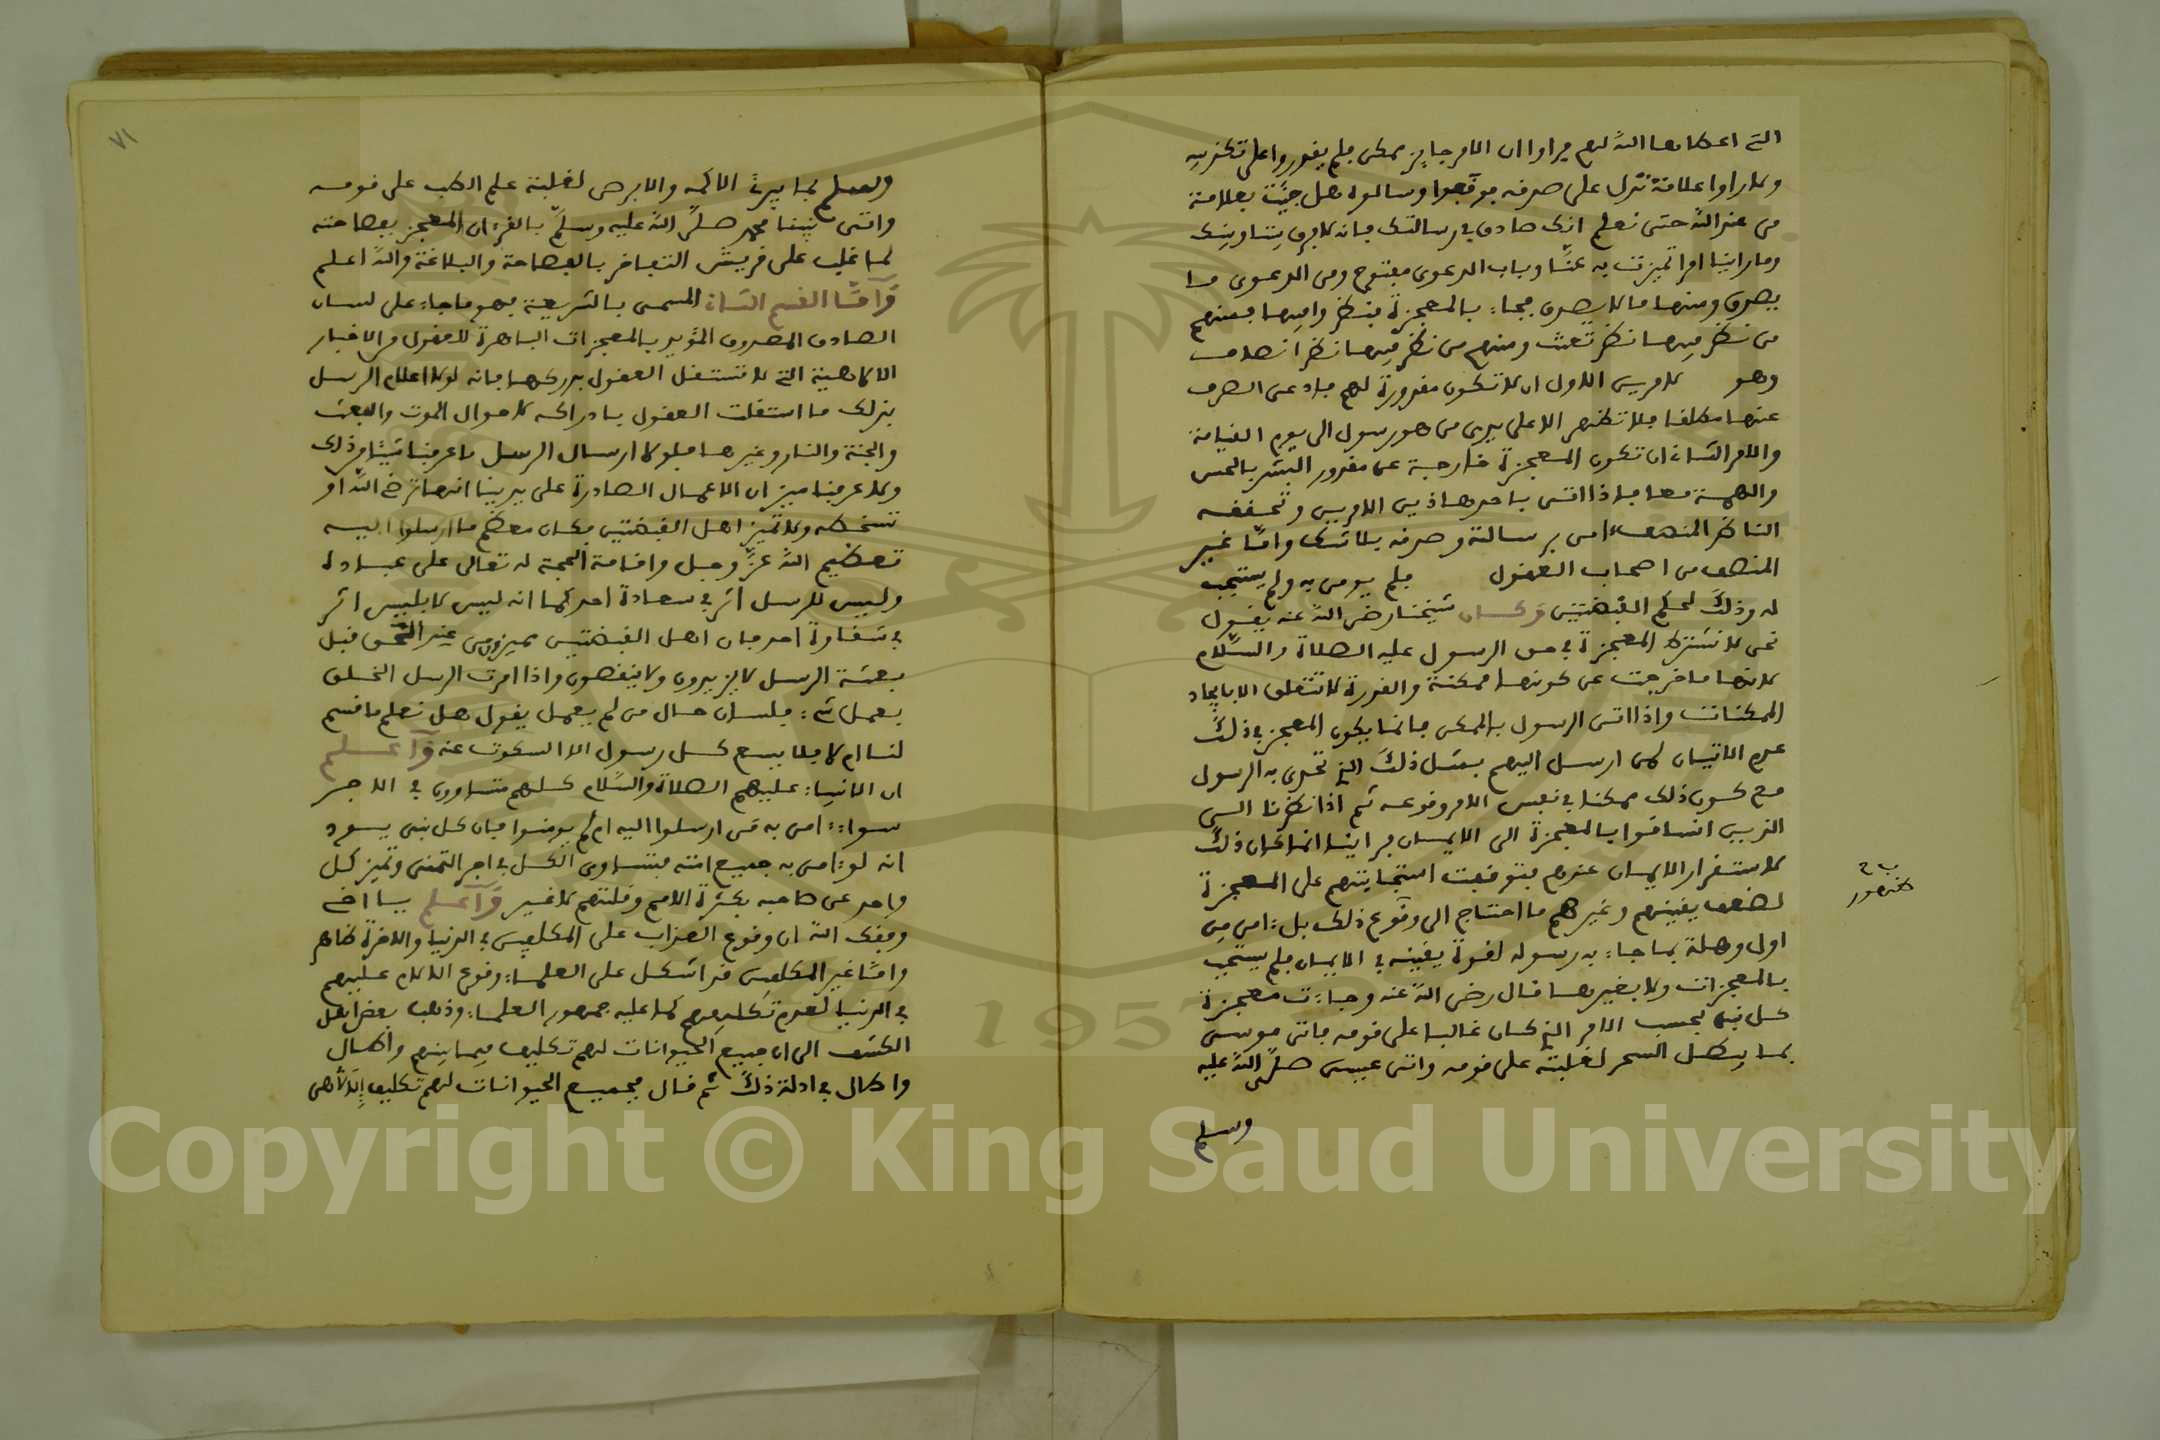 التي اعطاها الله لهم فراوا ان الامر جايز ممكن فلم يقدروا على تكذيبه
ولا راوا علامة تدل على صدقه فوقفوا وسالوه هل جيت بعلامة
من عند الله حتى نعلم انك صادق في رسالتك فانه لا فرق بيننا وبينك
وما راينا امرا تميزت به عنّا وباب الدعوى مفتوح ومن الدعوى ما
يصدق ومنها ما لا يصدق فجاء بالمعجزة فنظروا فيها فمنهم
من نظر فيها نظر تعنت ومنهم من نظر فيها نظر انصاف
وهو لامرين الاول ان لا تكون مقدورة لهم فادعى الصرف
عنها مطلقا فلا تظهر الا على يدي من هو رسول الى يوم القيامة
والامر الثاني ان تكون المعجزة خارجة عن مقدور البشر بالحس
والهمة معا فاذا اتى باحد هاذين الامرين وتحققه
الناظر المنصف ءامن برسالته وصدقه بلا شك وامّا غير
المنصف من اصحاب العقول فلم يومن به ولم يستجب
له وذلك لحكم القبضتين وكان شيخنا رضي الله عنه يقول
نحن لا نشترط المعجزة في حق الرسول عليه الصلاة والسّلام
لانها ما خرجت عن كونها ممكنة والقدرة لا تتعلق الا بايجاد
الممكنات واذا اتى الرسول بالممكن فانما يكون المعجز في ذلك
عدم الاتيان ممن ارسل اليهم بمثل ذلك الذي تحدى به الرسول
مع كون ذلك ممكنا في نفس الامر وقوعه ثم اذا نظرنا الى
الذين انساقوا بالمعجزة الى الايمان فراينا انما كان ذلك
لاستقرار الايمان عندهم فتوقفت استجابتهم على المعجزة
لضعف يقينهم وغيرهم ما احتاج الى وقوع ذلك بل ءامن من
اول وهلة بما جاء به رسوله لقوة يقينه في الايمان فلم يستجب
بالمعجزات ولا بغيرها قال رضي الله عنه وجاءت معجزة
كل نبي بحسب الامر الذي كان غالبا على قومه فاتى موسى
بما يبطل السحر لغلبته على قومه واتى عيسى صلّى الله عليه
وسلم
وسلم بما يبرئ الاكمه والابرص لغلبة علم الطب على قومه
واتى نبينا محمد صلّى الله عليه وسلّم بالقرءان المعجز بفصاحته
لما غلب على قريش التفاخر بالفصاحة والبلاغة والله اعلم
وأمّا القسم الثاني المسمى بالشريعة فهو ما جاء على لسان
الصادق المصدوق المؤيد بالمعجزات الباهرة للعقول والاخبار
الالاهية التي لا تستقل العقول بدركها فانه لولا اعلام الرسل
بذلك ما استقلت العقول بادراكه لاحوال الموت والبعث
والجنة والنار وغيرها فلولا ارسال الرسل ما عرفنا شيئا من ذلك
ولا عرفنا ميزان الاعمال الصادرة على يدينا انها ترضي الله او
تسخطه ولا تميز اهل القبضتين فكان معظم ما ارسلوا اليه
تعظيم الله عزّ وجل واقامة الحجة له تعالى على عباده
وليس للرسل اثر في سعادة احد كما انه ليس لابليس اثر
في شقاوة احد فان اهل القبضتين مميزون عند الحق قبل
بعثة الرسل لا يزيدون ولا ينقصون واذا امرت الرسل الخلق
بعمل شيء فلسان حال من لم يعمل يقول هل نعلم ما قسم
لنا ام لا فلا يسع كل رسول الا السكوت عنه وأعلم
ان الانبياء عليهم الصلاة والسّلام كلهم متساوون في الاجر
سواء ءامن به من ارسلوا اليه ام لم يومنوا فان كل نبي يود
انه لو ءامن به جميع امته فتساوى الكل في اجر التمني وتميز كل
واحد عن صاحبه بكثرة الامم وقلتهم لا غير وأعلم يا اخي
وفقك الله ان وقوع العذاب على المكلفين في الدنيا والاخرة ظاهر
وامّا غير المكلفين فقد اشكل على العلماء وقوع الالام عليهم
في الدنيا لعدم تكليفهم كما عليه جمهور العلماء وذهب بعض اهل
الكشف الى ان جميع الحيوانات لهم تكليف فيما بينهم واطال
واطال في ادلة ذلك ثم قال فجميع الحيوانات لهم تكليف
٧١